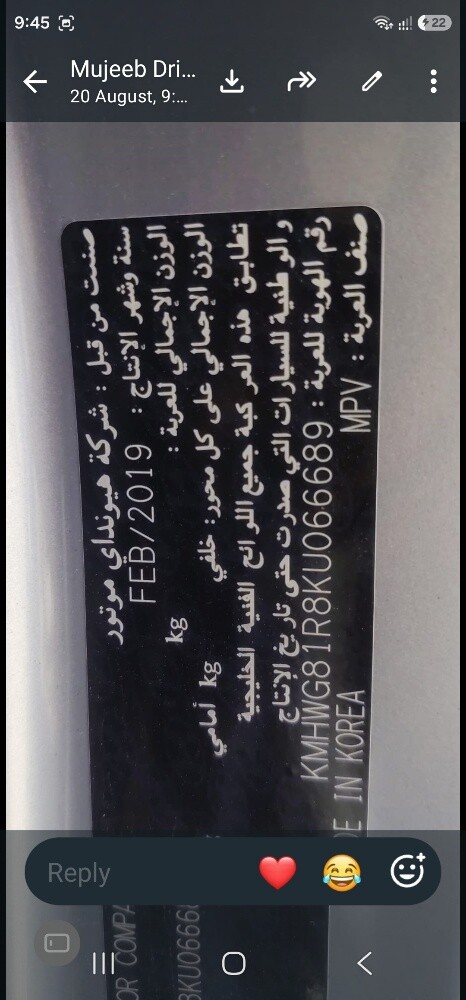 9:45
22
Mujeeb Dri...
20 August, 9:...
صنعت من قبل : شركة هيونداي موتور
سنة وشهر الإنتاج : FEB/2019
الوزن الإجمالي للعربة : kg
الوزن الإجمالي على كل محور : خلفي kg أمامي
تطابق هذه المركبة جميع اللوائح الفنية الخليجية
و الوطنية للسيارات التي صدرت حتى تاريخ الإنتاج
رقم الهوية للعربة : KMHWG81R8KU066689
صنف العربة : MPV
DE IN KOREA
OR COMPA
8KU0666
Reply